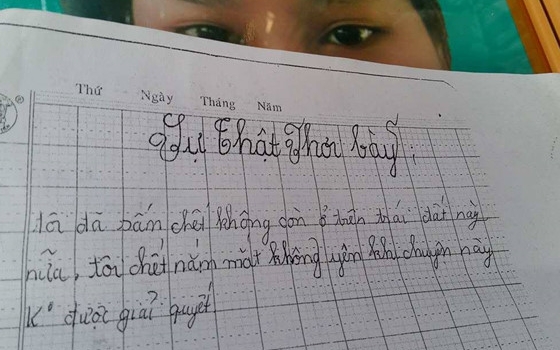 Thứ Ngày Tháng Năm
Sự thật Phơi bày:
tôi đã bấn chết không còn ở trên trái đất này
nữa, tôi chết nắm mắt không yên khi chuyện này
K° được giải quyết.